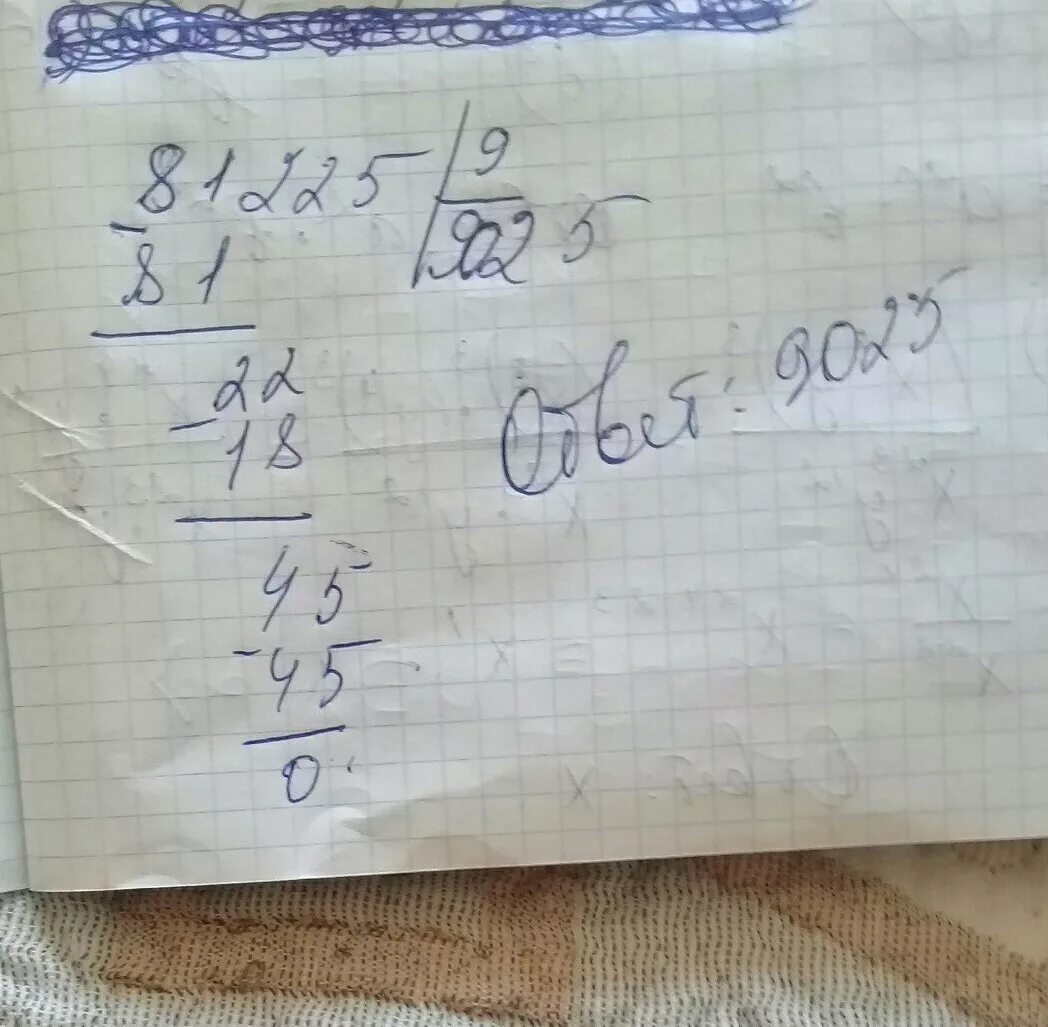 81225 | 9
- 81 | 9025
- 22
18
45
- 45
0
Ответ: 9025